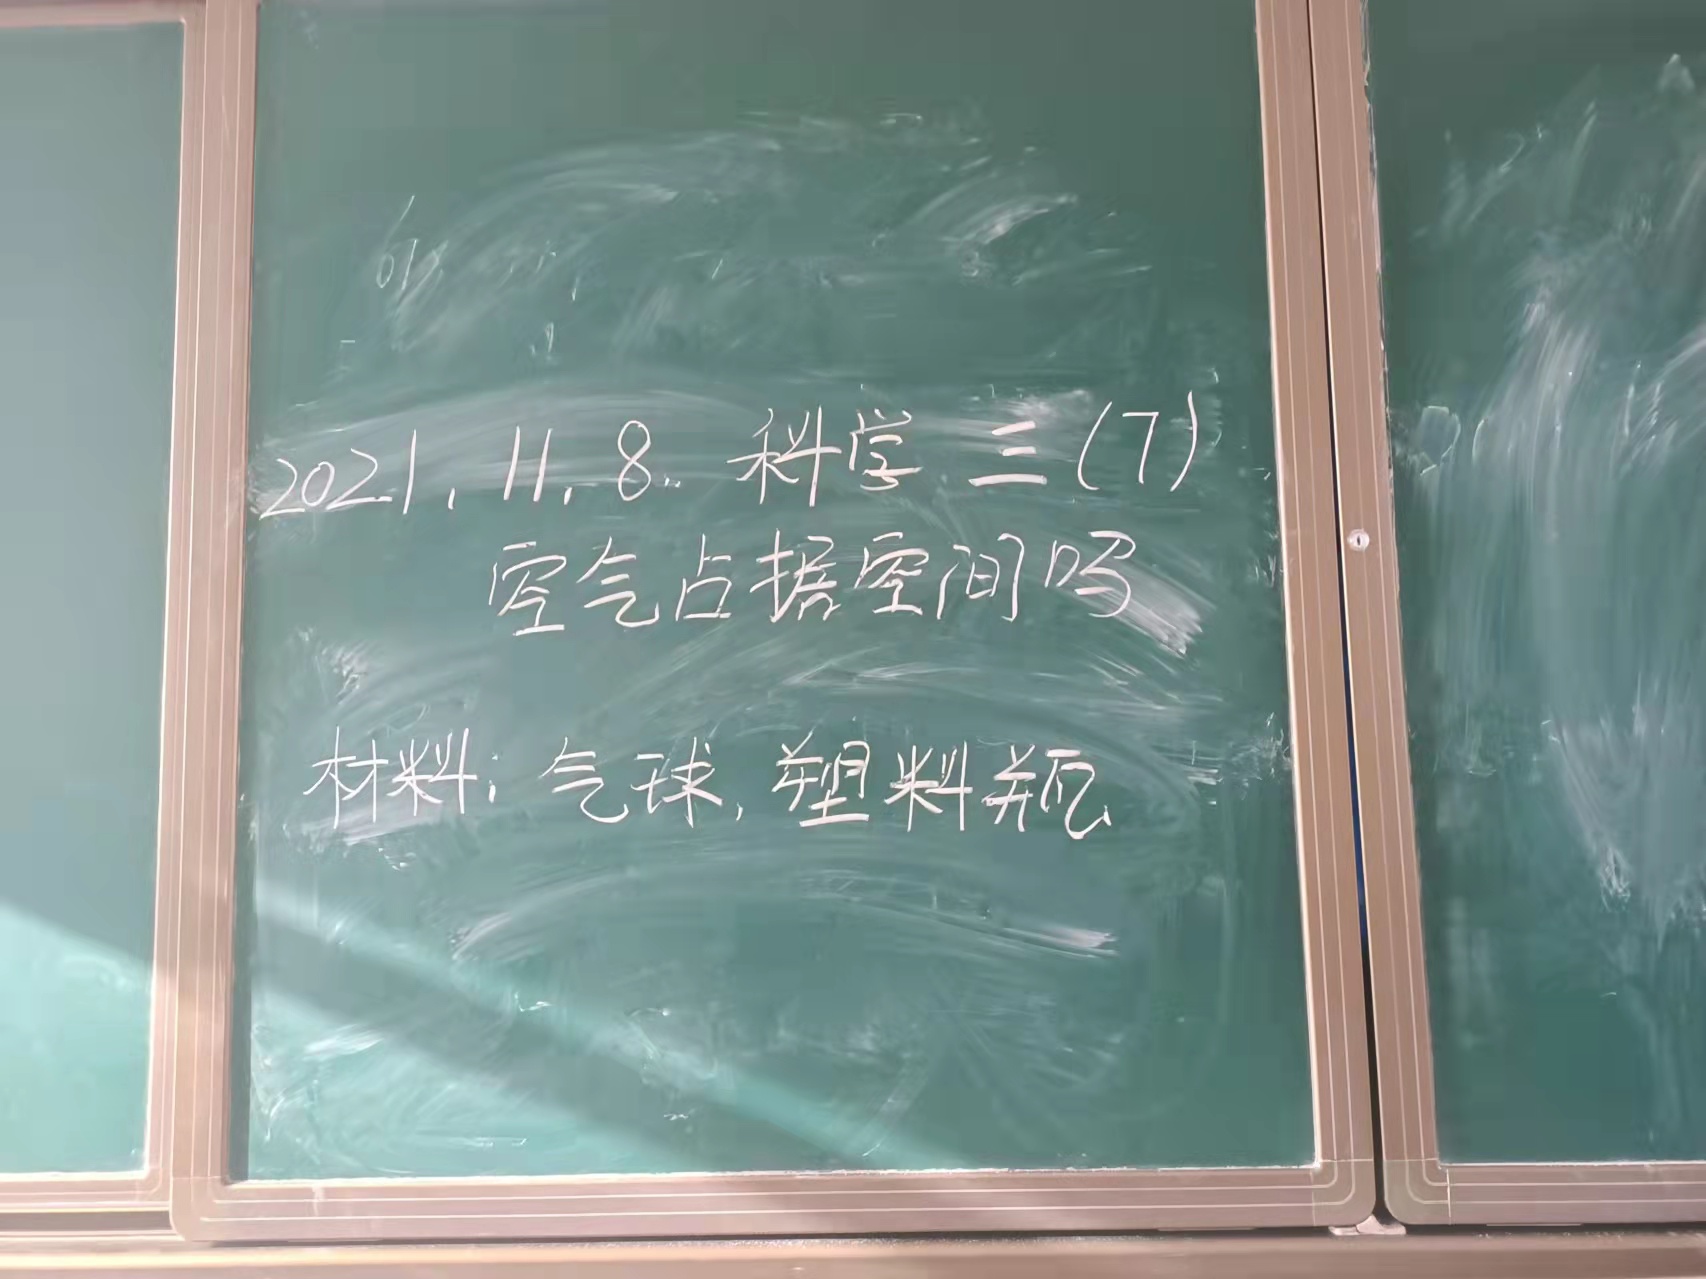 2021.11.8. 科学 三(7)
空气占据空间吗
材料: 气球, 塑料瓶